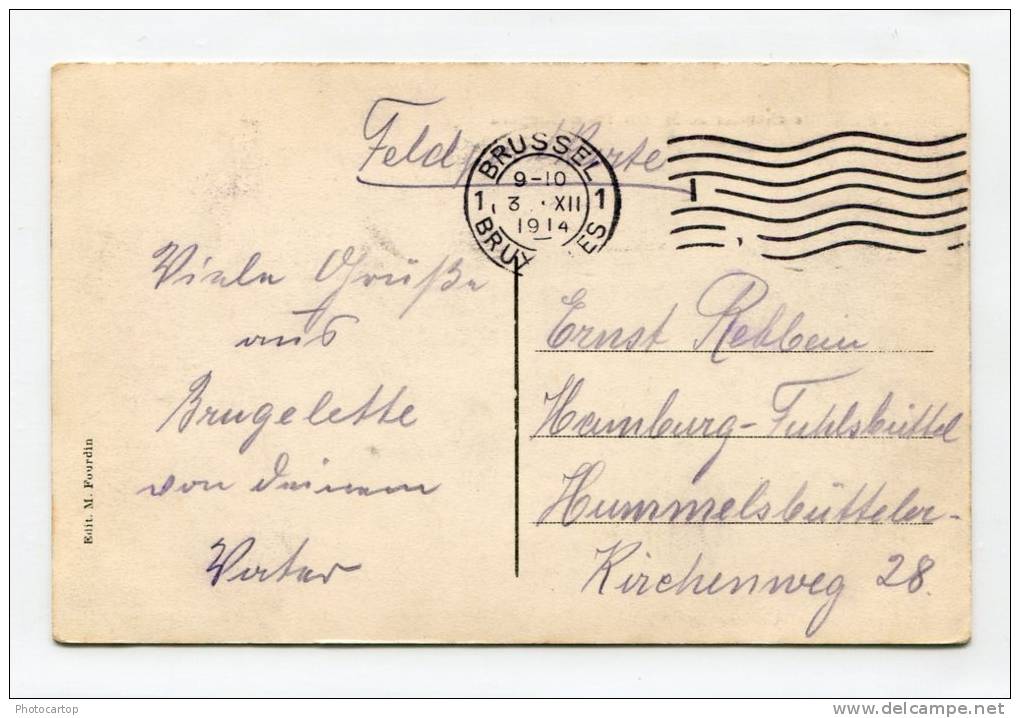 Feldpost Karte
BRUSSEL
9-10
1 3 XII 1
1914
BRUXELLES
Viele Grüße
aus
Brugelette
von deinem
Vater
Ernst Rehbein
Hamburg-Fuhlsbüttel
Hummelsbütteler-
Kirchenweg 28.
Edit. M. Fourdin
Photocartop
delcampe.net